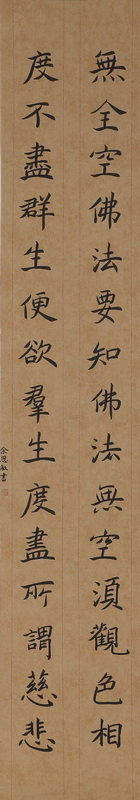 無全空佛法要知佛法無空須觀色相
度不盡群生便欲羣生度盡所謂慈悲
余恩敏書